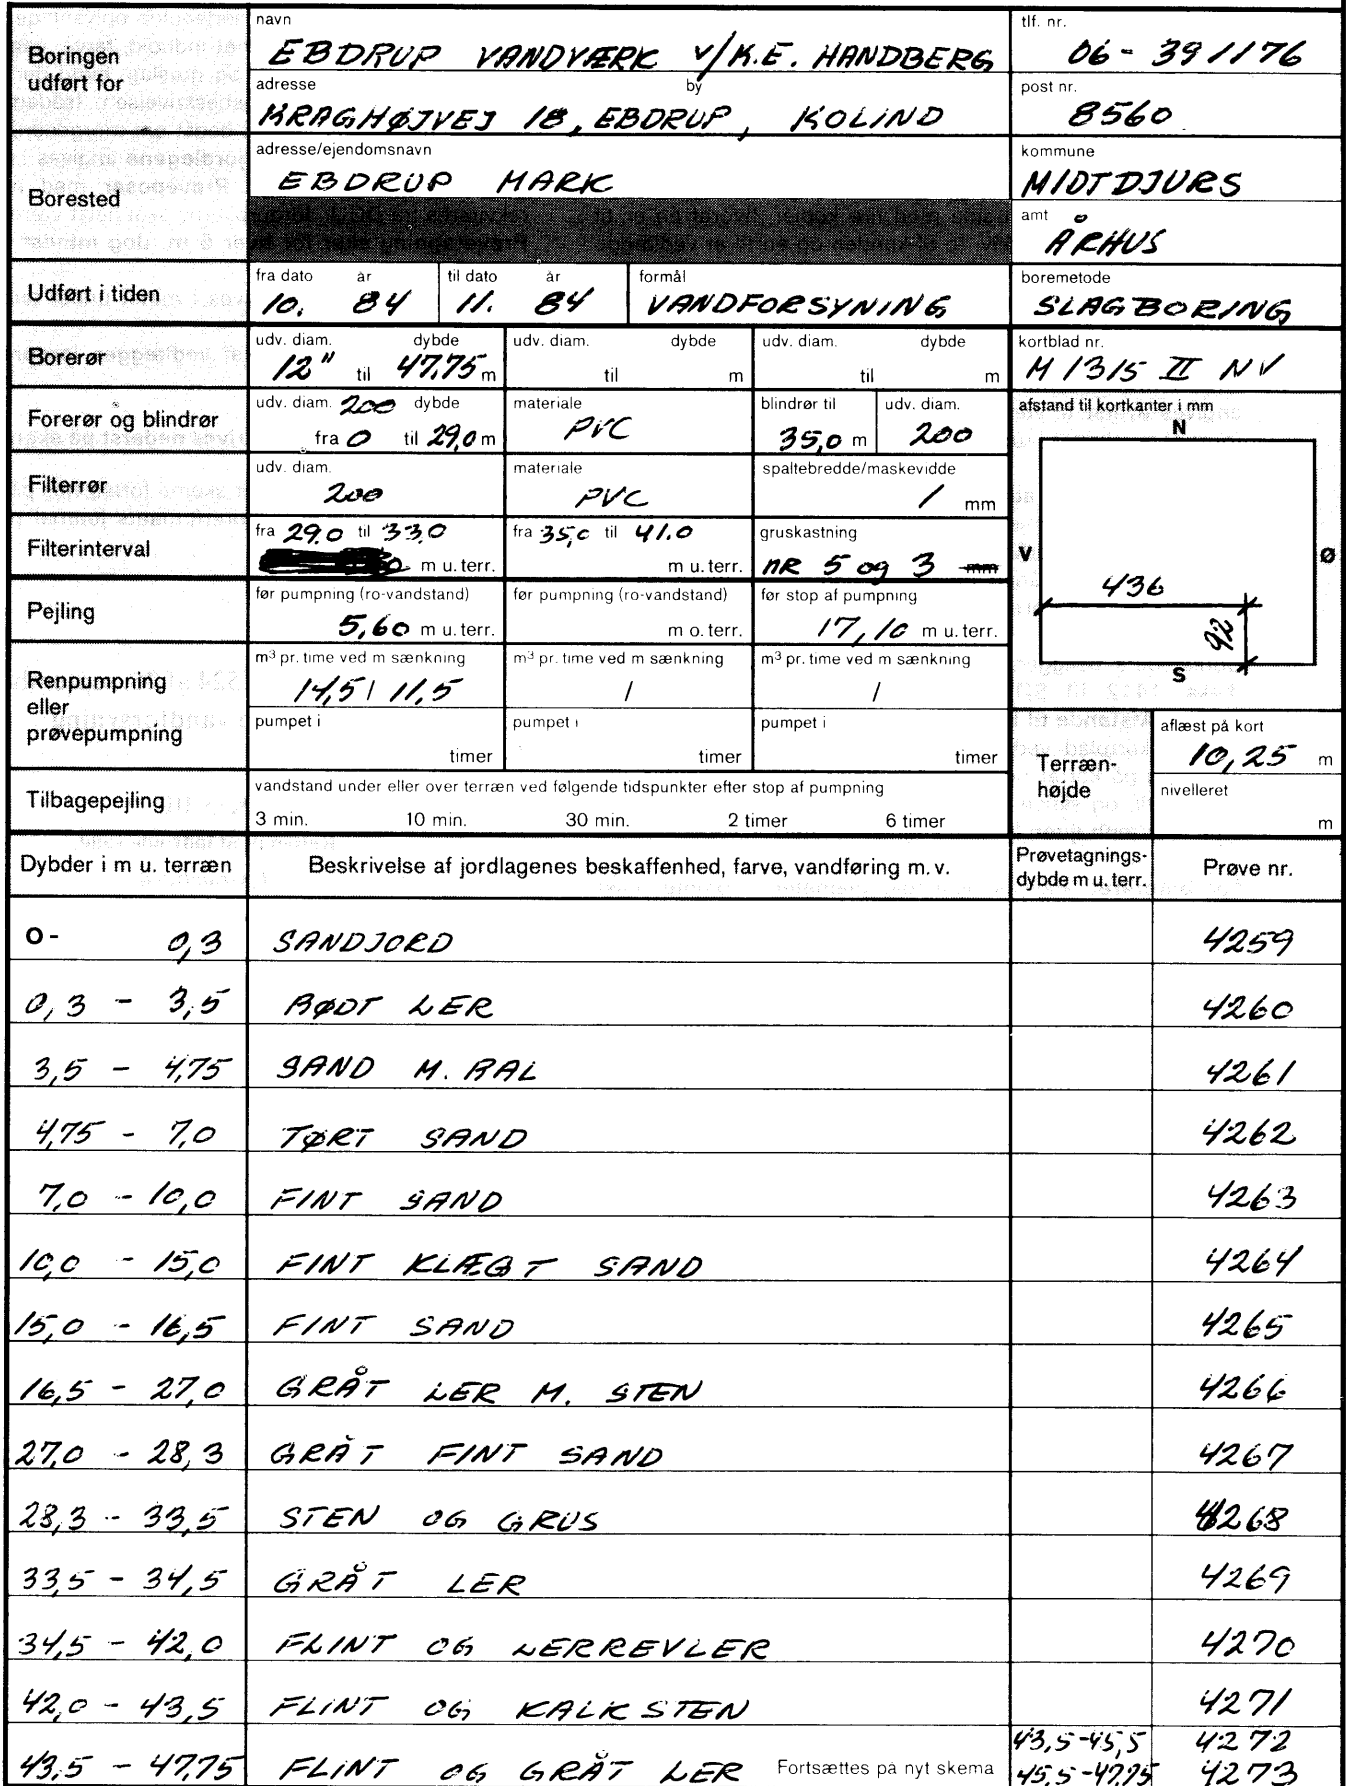 Boringen udført for
navn
EBDRUP VANDVÆRK v/K.E. HANDBERG
tlf. nr.
06-391176
adresse by
KRAGHØJVEJ 18, EBDRUP, KOLIND
post nr.
8560
Borested
adresse/ejendomsnavn
EBDRUP MARK
kommune
MIDTDJURS
amt
ÅRHUS
Udført i tiden
fra dato år til dato år formål
10. 84 11. 84 VANDFORSYNING
boremetode
SLAGBORING
Borerør
udv. diam. dybde udv. diam. dybde udv. diam. dybde
12" til 47,75 m til m til m
kortblad nr.
M 1315 II NV
Forerør og blindrør
udv. diam. 200 dybde materiale blindrør til udv. diam.
fra 0 til 29,0 m PVC 35,0 m 200
afstand til kortkanter i mm
N
V
Ø
S
436
92
Filterrør
udv. diam. materiale spaltebredde/maskevidde
200 PVC 1 mm
Filterinterval
fra 29.0 til 33,0 fra 35,0 til 41.0 gruskastning
m u. terr. m u. terr. NR 5 og 3 mm
Pejling
før pumpning (ro-vandstand) før pumpning (ro-vandstand) før stop af pumpning
5,60 m u. terr. m o. terr. 17,10 m u. terr.
Renpumpning eller prøvepumpning
m³ pr. time ved m sænkning m³ pr. time ved m sænkning m³ pr. time ved m sænkning
14,5 / 11,5 / /
pumpet i pumpet i pumpet i
timer timer timer
Terrænhøjde
aflæst på kort
10,25 m
nivelleret
m
Tilbagepejling
vandstand under eller over terræn ved følgende tidspunkter efter stop af pumpning
3 min. 10 min. 30 min. 2 timer 6 timer
Dybder i m u. terræn Beskrivelse af jordlagenes beskaffenhed, farve, vandføring m.v. Prøvetagnings-dybde m u. terr. Prøve nr.
0 - 0,3 SANDJORD 4259
0,3 - 3,5 RØDT LER 4260
3,5 - 4,75 SAND M. RAL 4261
4,75 - 7,0 TØRT SAND 4262
7,0 - 10,0 FINT SAND 4263
10,0 - 15,0 FINT KLÆGT SAND 4264
15,0 - 16,5 FINT SAND 4265
16,5 - 27,0 GRÅT LER M. STEN 4266
27,0 - 28,3 GRÅT FINT SAND 4267
28,3 - 33,5 STEN OG GRUS 4268
33,5 - 34,5 GRÅT LER 4269
34,5 - 42,0 FLINT OG LERREVLER 4270
42,0 - 43,5 FLINT OG KALKSTEN 4271
43,5-45,5 4272
43,5 - 47,75 FLINT OG GRÅT LER Fortsættes på nyt skema 45,5-47,75 4273